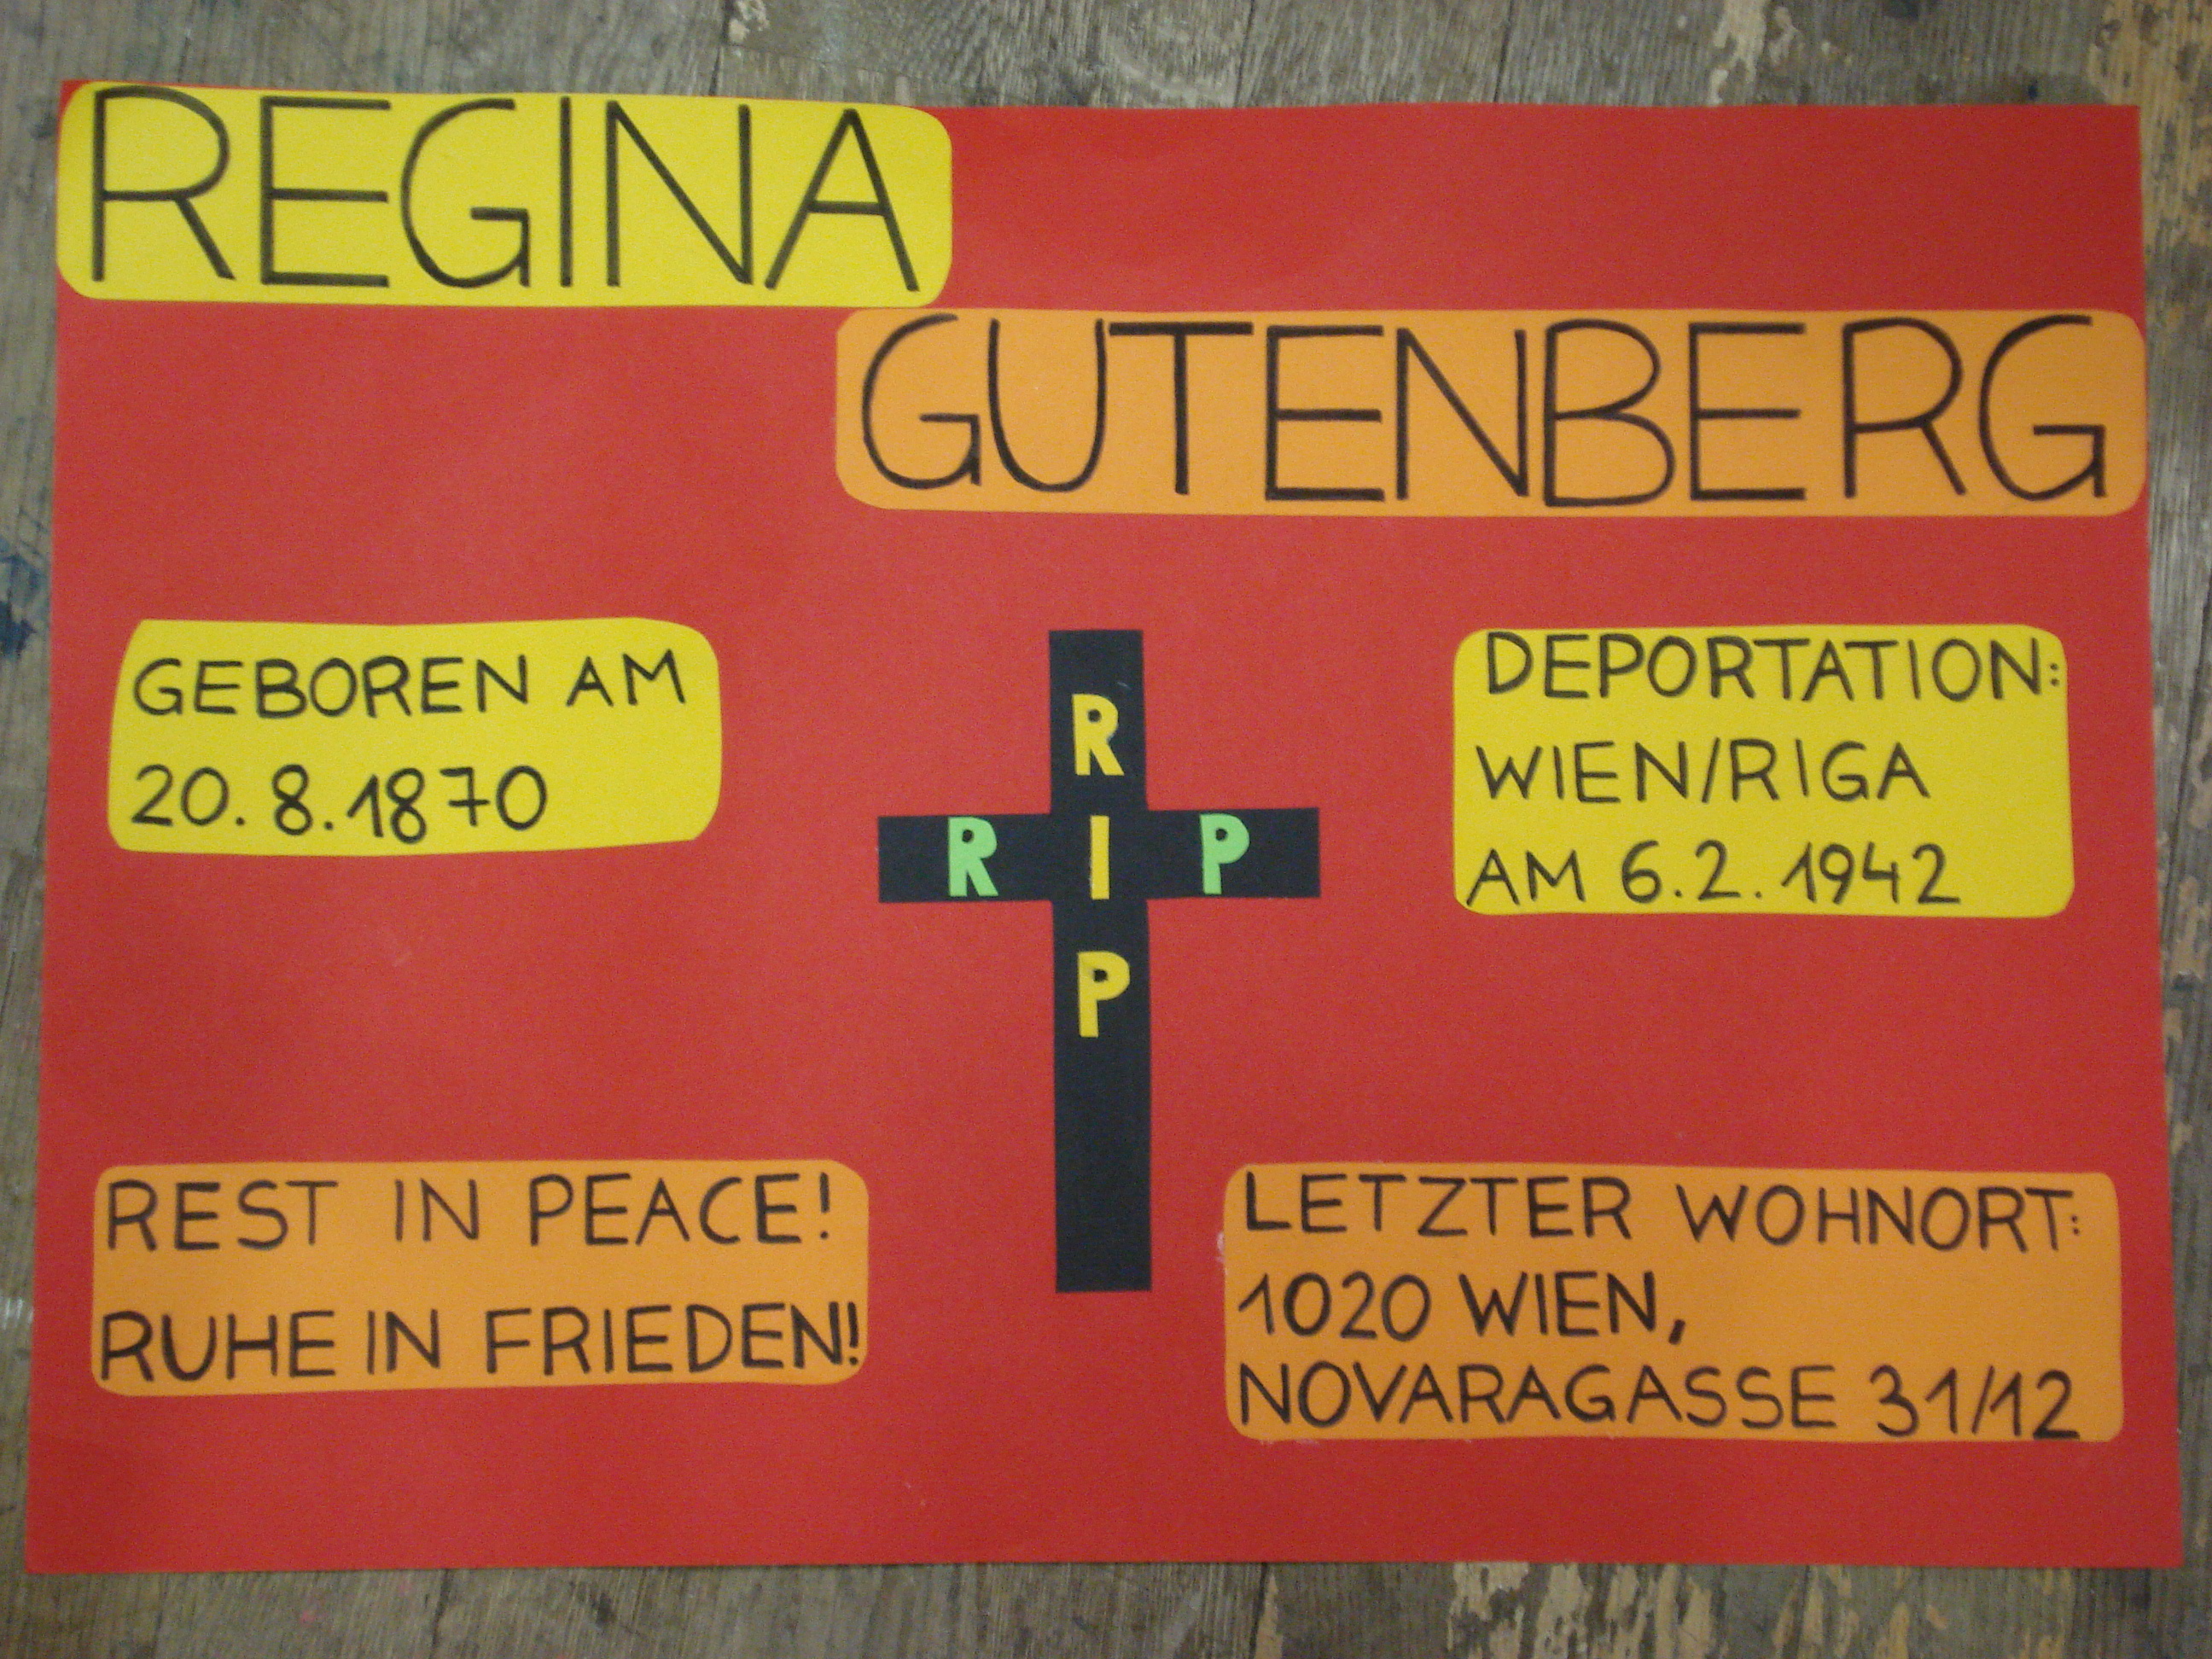 REGINA
GUTENBERG
GEBOREN AM
20.8.1870
DEPORTATION:
WIEN/RIGA
AM 6.2.1942
R
R I P
P
REST IN PEACE!
RUHE IN FRIEDEN!
LETZTER WOHNORT:
1020 WIEN,
NOVARAGASSE 31/12